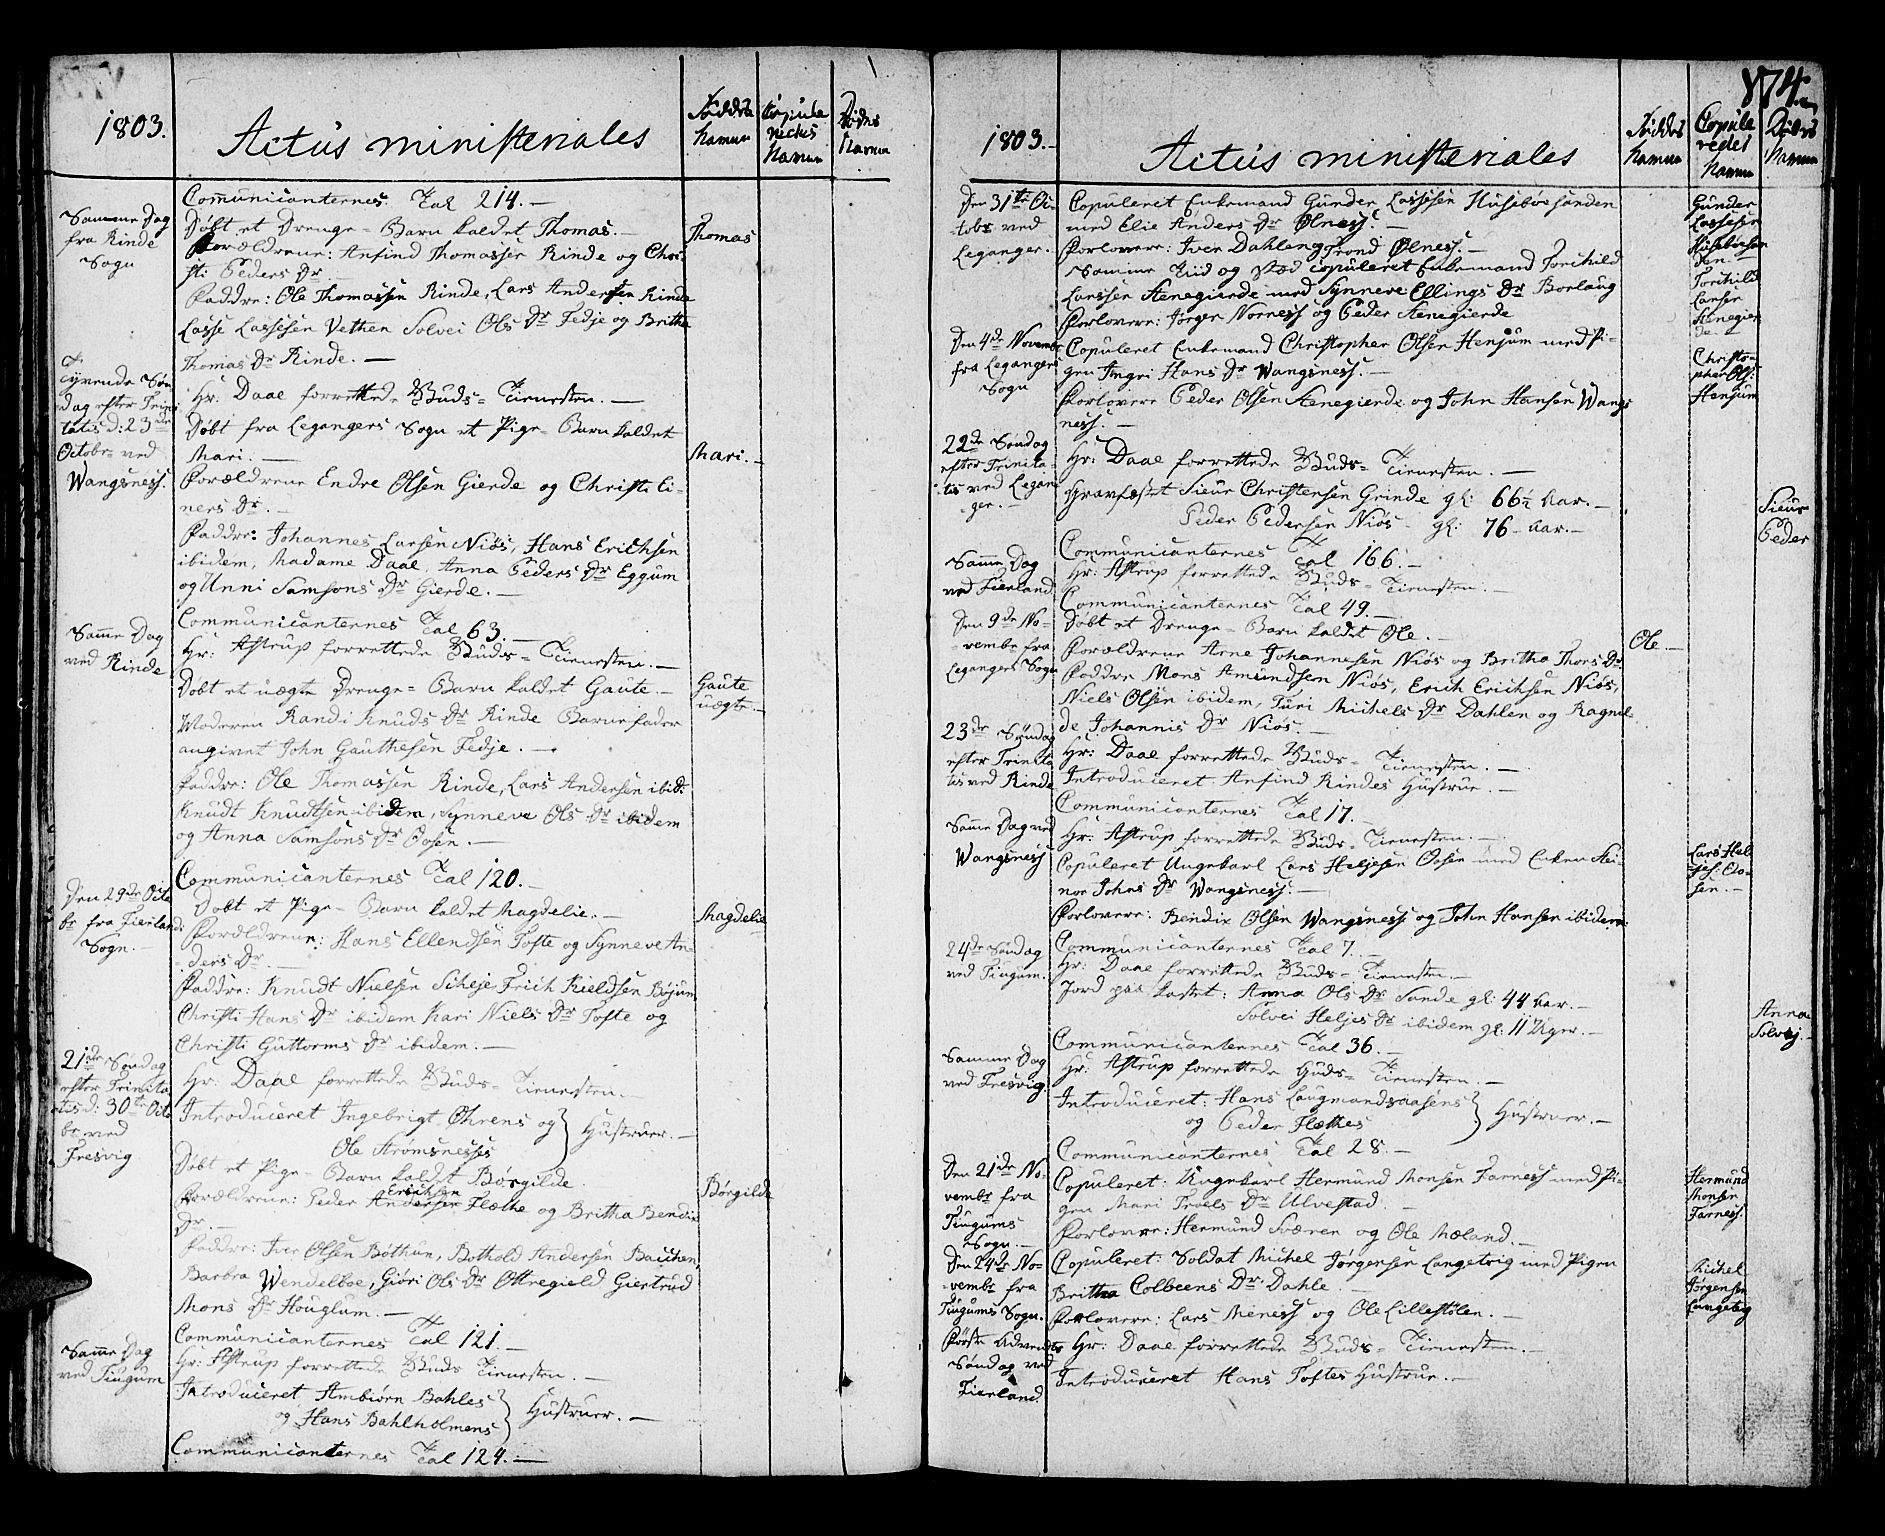 1803.
Actus ministeriales
Føddes Navne
Copule redes Navne
Dødes Navne
Communicanternes Tal 214. —
Samme Dag fra Rinde Sogn
Døbt et Drenge-Barn kaldet Thomas. —
Thomas
Forældrene: Anfind Thomassen Rinde og Chri-
sti Peders Dr
Faddre: Ole Thomassen Rinde, Lars Andersen Rinde
Lasse Lassesen Vethen Solvei Ols Dr Fedje og Britha
Thomas Dr Rinde. —
Tyvende Søn-
dag efter Trini
tatis d: 23de
Octobr ved
Wangsness.
Hr: Daae forrettede Guds-Tienesten. —
Døbt fra Legangers Sogn et Pige-Barn kaldet
Mari. —
Mari. —
Forældrene Endre Olsen Gierde og Christi Ei-
ners Dr. —
Faddre: Johannes Larsen Niøs, Hans Erichsen
ibidem, Madame Daae, Anna Peders Dr Eggum
og Unni Samsons Dr Gierde. —
Communicanternes Tal 63. —
Samme Dag
ved Rinde
Hr: Astrup forrettede Guds-Tienesten. —
Døbt et uægte Drenge-Barn kaldet Gaute. —
Gaute
uægte. —
Moderen Randi Knuds Dr Rinde Barnefader
angivet John Gauthesen Fedje. —
Faddre: Ole Thomassen Rinde, Lars Andersen ibid:
Knudt Knudtsen ibidem, Synneve Ols Dr ibidem
og Anna Samsons Dr Oosen. —
Communicanternes Tal 120. —
Den 29de Octo
br fra Fierland
Sogn. —
Døbt et Pige-Barn kaldet Magdelie. —
Magdelie
Forældrene: Hans Ellendsen Tofte og Synneve An-
ders Dr. —
Faddre: Knudt Nielsen Scheje Erich Kieldsen Bøjum
Christi Hans Dr ibidem Kari Niels Dr Tofte og
Christi Guttorms Dr ibidem. —
21de Søndag
efter Trinita
tis d: 30te Octo
br ved
Fresvig
Hr: Daae forrettede Guds-Tienesten. —
Introduceret Ingebrigt Øhrens og } Hustruer. —
Ole Strømsnesses
Døbt et Pige-Barn kaldet Børgilde.
Børgilde
Erichsen
Forældrene: Peder Andersen Flæthe og Britha Bendix
Dr. —
Faddre: Iver Olsen Bøthun, Bothold Andersen
Barbra Wendelboe, Giøri Ols Dr Ottregield Giertrud
Mons Dr Houglum. —
Communicanternes Tal 121. —
Samme Dag
ved Tiugum
Hr: Astrup forrettede Guds Tienesten. —
Introduceret Ambiørn Bahles } Hustruer. —
og Hans Bahlholmens
Communicanternes Tal 124. —
174.
1803. —
Actus ministeriales
Føddes Navne
Copule redes Navne
Dødes Navne
Den 31te Oc-
tobr ved
Leganger. —
Copuleret Enkemand Gunder Lassesen Husebøesanden
med Elie Anders Dr Ølness. —
Gunder
Lassesen
Husebøesan
den —
Forlovere: Iver Dahlen Trond Ølness. —
Samme Tiid og Stæd copuleret Enkemand Torchild
Larssen Stenegierde med Synneve Ellings Dr Borlaug
Torchild
Larsen
Stenegier
de —
Forlovere: Jørgen Norness og Peder Stenegierde
Den 4de Novembr
fra Legangers
Sogn
Copuleret Enkemand Christopher Olsen Henjum med Pi-
gen Ingri Hans Dr Wangsness. —
Christo-
pher Ols:
Henjum
Forlovere Peder Olsen Stenegierde og John Hansen Wangs
ness. —
22de Søndag
efter Trinita-
tis ved Legan-
ger. —
Hr: Daae forrettede Guds-Tienesten. —
Gravfæstet Sieur Christensen Grinde gl: 66½ Aar. —
Sieur
Peder Pedersen Niøs gl: 76 Aar. —
Peder
Communicanternes Tal 166. —
Samme Dag
ved Fierland
Hr: Astrup forrettede Guds-Tienesten. —
Communicanternes Tal 49. —
Den 9de No-
vembr fra
Legangers Sogn
Døbt et Drenge-Barn kaldet Ole. —
Ole —
Forældrene Arne Johannesen Niøs og Britha Thors Dr
Faddre Mons Amundsen Niøs, Erich Erichsen Niøs,
Niels Olsen ibidem, Turi Michels Dr Dahlen og Ragnil-
de Johannis Dr Niøs. —
23de Søndag
efter Trinita
tis ved Rinde
Hr: Daae forrettede Guds-Tienesten. —
Introduceret Anfind Rindes Hustrue. —
Communicanternes Tal 17. —
Samme Dag ved
Wangsness
Hr: Astrup forrettede Guds-Tienesten. —
Copuleret Ungekarl Lars Heljesen Oosen med Enken Stei-
nor Johns Dr Wangsness. —
Lars Hel
jes: Oo-
sen. —
Forlovere: Bendix Olsen Wangsness og John Hansen ibidem
Communicanternes Tal 7. —
24de Søndag
ved Tiugum.
Hr: Daae forrettede Guds-Tienesten. —
Jord paa kastet: Anna Ols Dr Sande gl: 44 Aar. —
Anna
Solvei Heljes Dr ibidem gl: 11 Uger. —
Solvej. —
Communicanternes Tal 36. —
Samme Dag
ved Fresvig.
Hr: Astrup forrettede Guds-Tienesten. —
Introduceret: Hans Laugmandsaasens } Hustruer. —
og Peder Flæthes
Communicanternes Tal 28. —
Den 21de No-
vembr fra
Tiugums
Sogn. —
Copuleret: Ungekarl Hermund Monsen Farness med Pi-
gen Mari Troels Dr Ulvestad.
Hermund
Monsen
Farness.
Forlovere: Hermund Sværen og Ole Mæland. —
Den 24de No-
vembr fra
Tiugums Sogn.
Copuleret: Soldat Michel Jørgensen Langetvig med Pigen
Britha Colbeens Dr Dahle. —
Michel
Jørgensen
Langetvig
Forlovere: Lars Meness og Ole Lillestølen. —
Første Advents
Søndag ved
Fierland.
Hr: Daae forrettede Guds-Tienesten. —
Introduceret Hans Toftes Hustrue. —